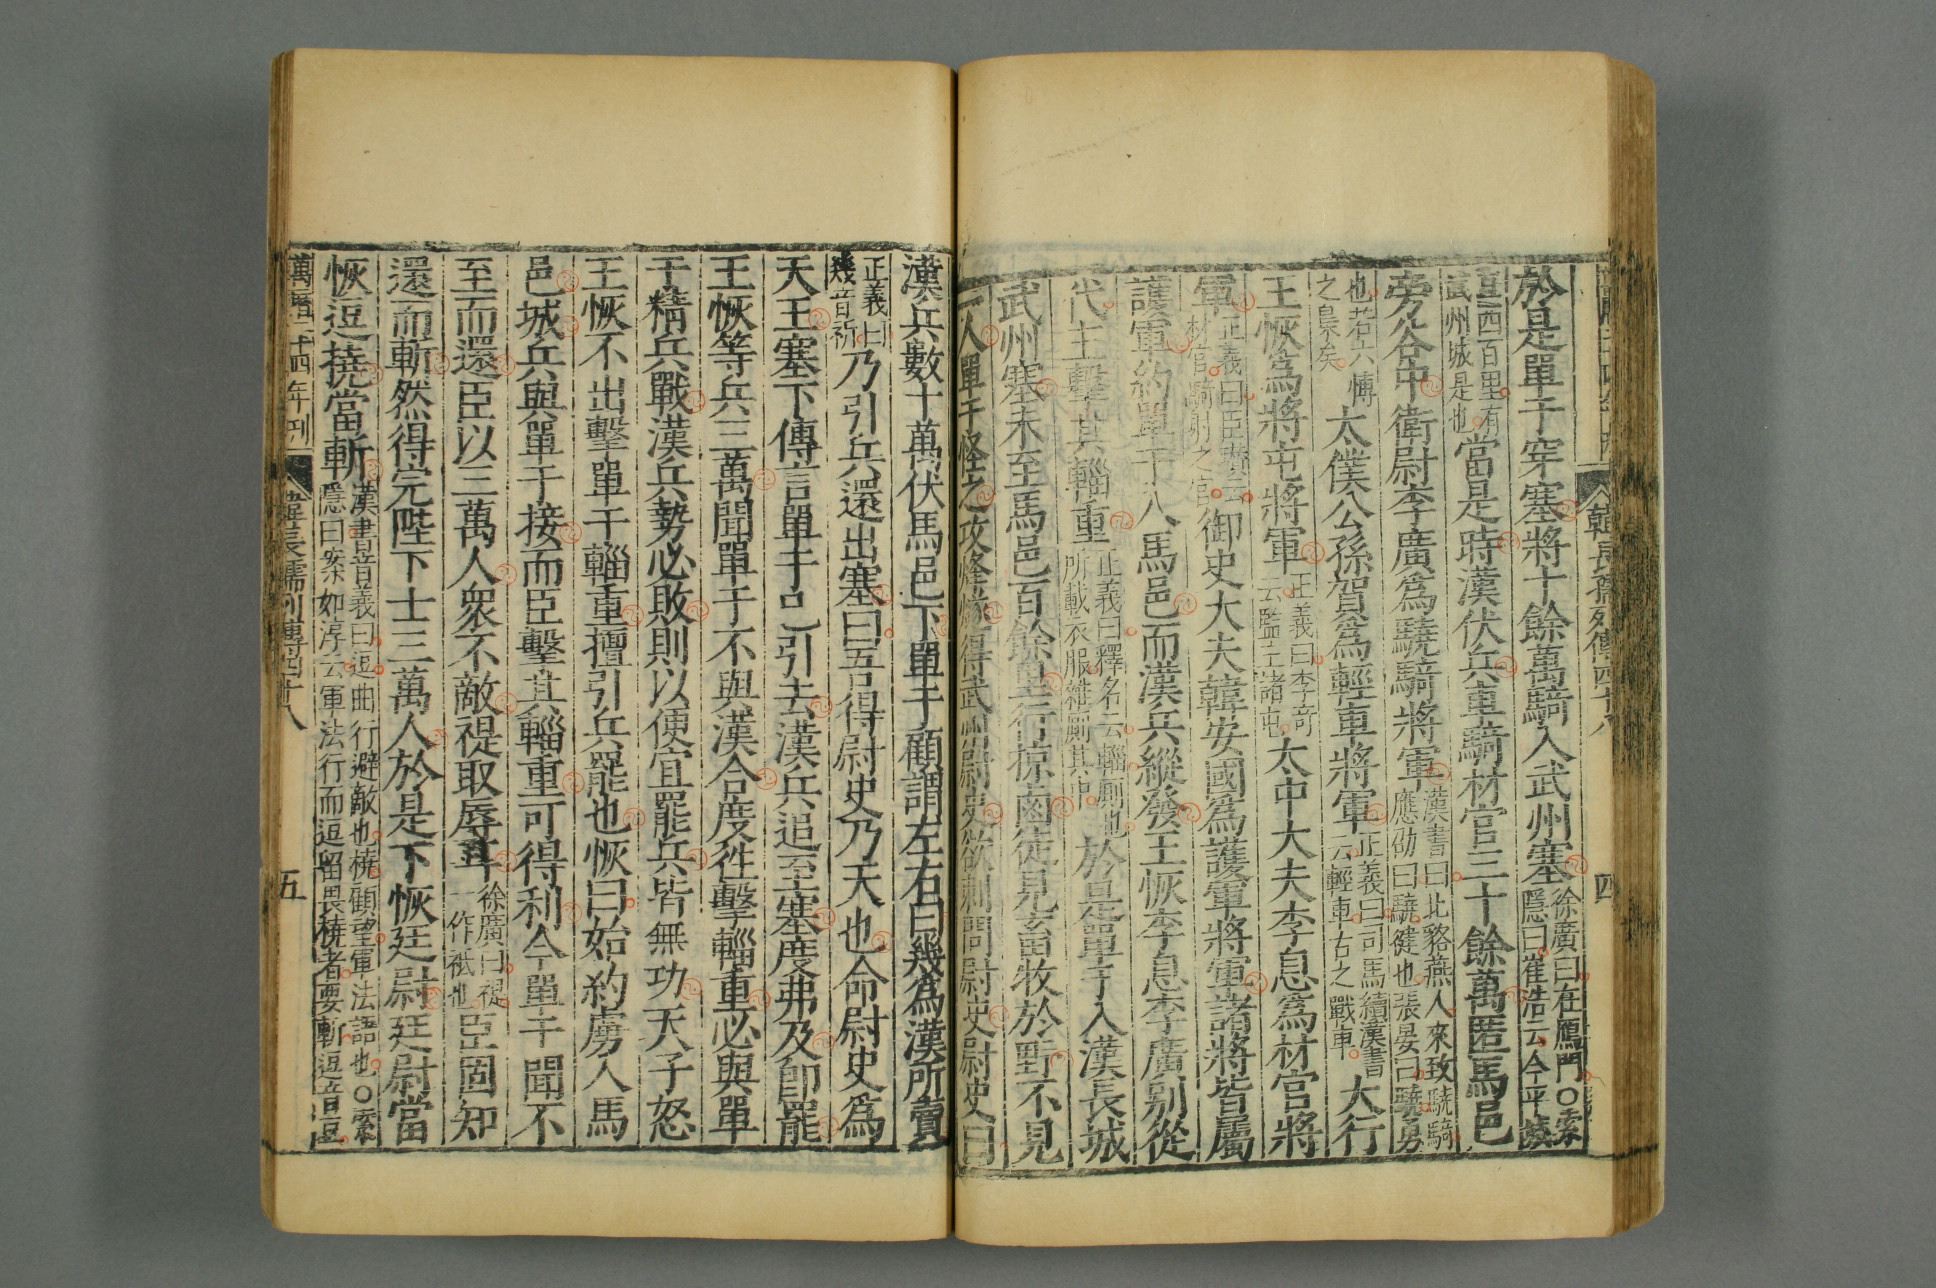 韓長孺列傳四十八
四
於是單于穿塞將十餘萬騎入武州塞徐廣曰在鴈門○索隱曰崔浩云今平城
直西百里有武州城是也當是時漢伏兵車騎材官三十餘萬匿馬邑
旁谷中衛尉李廣爲驍騎將軍漢書曰北貉燕人來致驍騎應劭曰驍健也張晏曰驍勇
也若六博之梟矣太僕公孫賀爲輕車將軍正義曰司馬續漢書云輕車古之戰車大行
王恢爲將屯將軍正義曰李奇云監主諸屯太中大夫李息爲材官將
軍正義曰臣瓚云材官騎射之官御史大夫韓安國爲護軍將軍諸將皆屬
護軍約單于入馬邑而漢兵縱發王恢李息李廣別從
代主擊其輜重正義曰釋名云輜厠也所載衣服雜厠其中於是單于入漢長城
武州塞未至馬邑百餘里行掠鹵徒見畜牧於野不見
一人單于怪之攻烽燧得武州尉史欲刺問尉史尉史曰
漢兵數十萬伏馬邑下單于顧謂左右曰幾爲漢所賣
正義曰幾音祈乃引兵還出塞曰吾得尉史乃天也命尉史爲
天王塞下傳言單于已引去漢兵追至塞度弗及卽罷
王恢等兵三萬聞單于不與漢合度徃擊輜重必與單
于精兵戰漢兵勢必敗則以便宜罷兵皆無功天子怒
王恢不出擊單于輜重擅引兵罷也恢曰始約虜入馬
邑城兵與單于接而臣擊其輜重可得利今單于聞不
至而還臣以三萬人衆不敵禔取辱耳徐廣曰禔一作祇也臣固知
還而斬然得完陛下士三萬人於是下恢廷尉廷尉當
恢逗撓當斬漢書音義曰逗曲行避敵也撓顧望軍法語也○索隱曰案如淳云軍法行而逗留畏撓者要斬逗音豆
萬曆二十四年刊
韓長孺列傳四十八
五